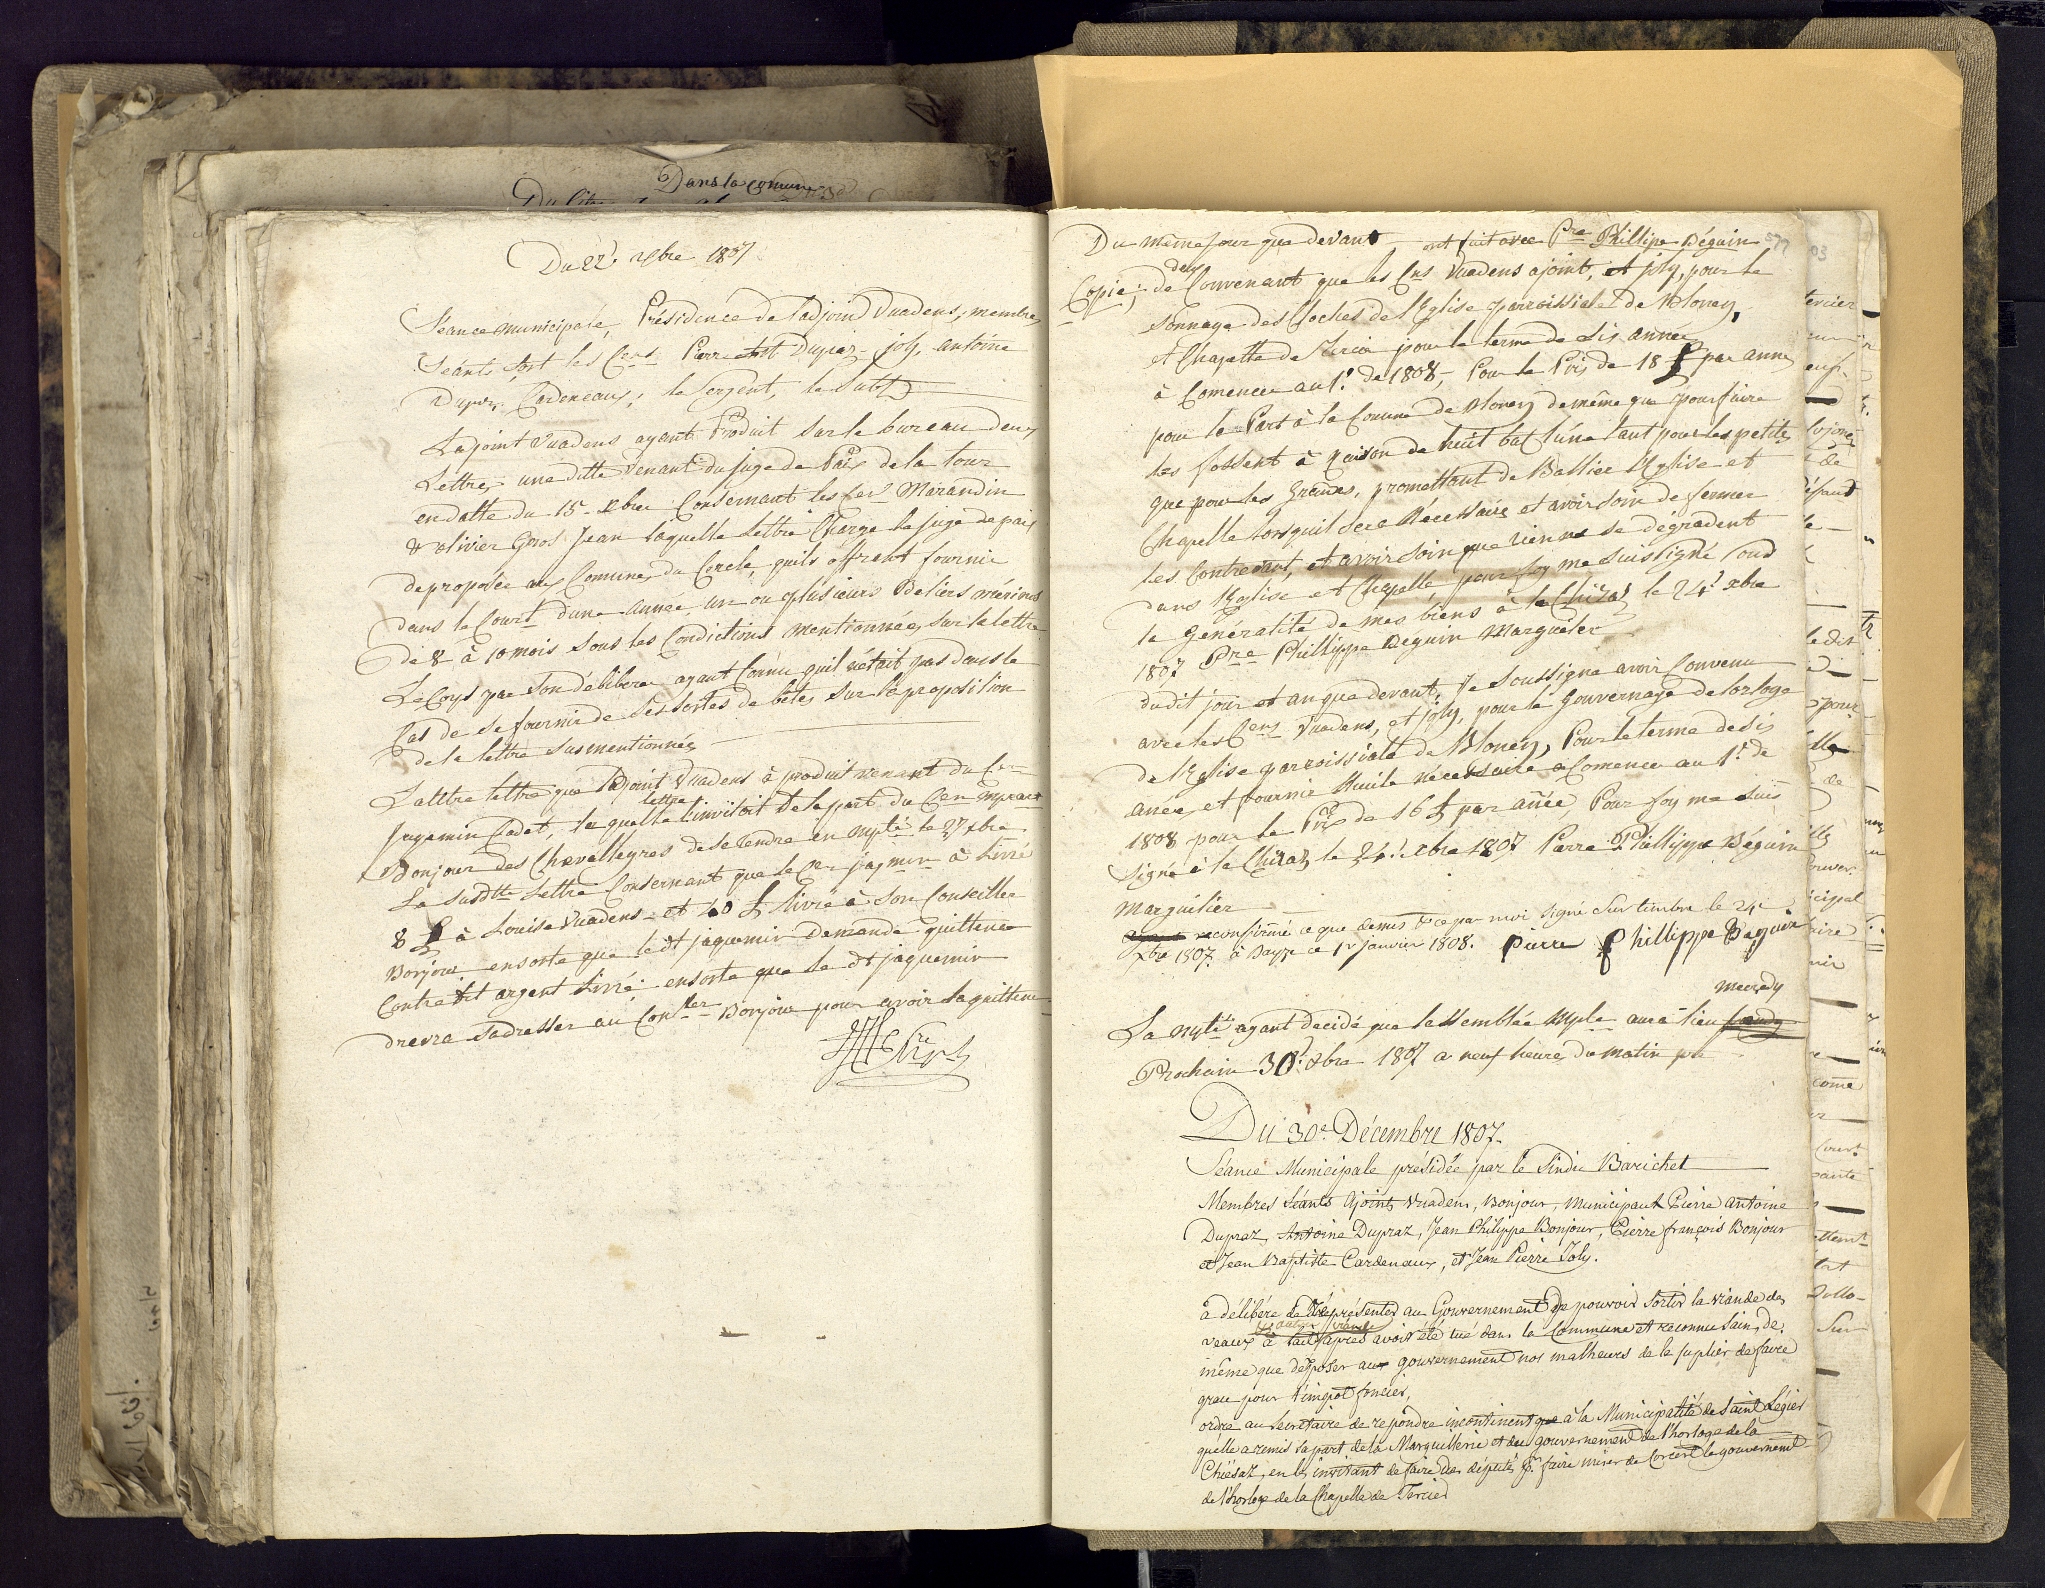 Dans la Comune
Du 22e Xbre 1807
Séance municipale, Présidence de l'adjoint Vuadens, membres
Séants sont les Cens Pierre Ant Dupraz joly, antoine
Dupraz, Cardeneaux, le Sergent, le Subst
L'ajoint Vuadens ayant Produit sur le bureau deux
Lettres une ditte venant du juge de Paix de la tour
en datte du 15 Xbre Consernant les fer Marandin
& olivier Gros Jean laquelle lettre Charge le juge de paix
de proposée aux Comunes du Cercle, quils offrent fournir
dans le Court d'une année un ou plusieurs Béliers mérinos
de 8 à 10 mois sous les Condictions mentionnées sur la lettre
Le Corps par son délibéré ayant Connu quil n'était pas dans le
Cas de se fournir de ses sortes de bêtes sur la proposition
de la lettre susmentionnée
L'auttre lettre que l'ajoint Vuadens à produit venant du Cen
Jaquemin Cadet, la quelle lettre l'invitoit de la part du Cen
Bonjour des Chevalleyres de se rendre en mplté le 27 Xbre
La susdtte Lettre Consernant que le Cen jaqmin à livré
8 £ à Louise Vuadens et 40 £ livré à Son Conseiller
Bonjour ensorte que le dt jaquemin Demande quittence
Contre dit argent livré ensorte que le dt jaquemin
drevra sadresser au Conller Bonjour pour avoir sa quittence
Du même jour que devant ont fait avec Pre Phillipe Béguin
Copie, de Convenant que les Cns Vuadens ajoint, et joly, pour le
Sonnage des Cloches de l'Eglise parroissiale de Blonay,
et Chapelle de Tercier pour le terme de Sis année
à Comencer au 1er de 1808, Pour le Pris de 18 £ par année
pour le Part à la Comune de Blonay de même que pour faire
les fossent à raison de huit bat l'une tant pour les petite
que pour les Grandes, promettant de Ballier l'Eglise et
Chapelle lorsquil sera Nécessaire et avoir soin de fermer
les Contrevant, et avoir soin que rienne se dégradent
dans l'Eglise et Chapelle, pour foy me suis signé sous
la généralité de mes biens à la Chiésaz le 24e Xbre
1807 Pre Phillippe Béguin Marguiler
dudit jour et an que devant, Je soussigne avoir Convenu
avec les Cens Vuadens, et joly, pour le Gouvernage de lorloge
de l'Eglise parroissiale de Blonay, Pour le terme de Sis
anée et fournir l'huile nécessaire à Comencer au 1er de
1808 pour le Pris de 16 £ par année, Pour foy me suis
Signé à la Chiésaz le 24e Xbre 1807 Pierre Phillippe Béguin
Marguilier
confirmé ce que demis ce par moi signé sur timbre le 24e
Xbre 1807. à ce 1r Janvier 1808. Pierre Phillippe Béguin
mecredy
La mplté ayant décidé que lassemblée mple aura lieu
Prochain 30e Xbre 1807 a neuf heure du matin
Du 30e Décembre 1807.
Séance Municipale présidée par le Sindic Barichet
Membres Séants Ajoints Vuadens, Bonjour, Municipaux Pierre Antoine
Dupraz, Antoine Dupraz, Jean Philippe Bonjour, Pierre françois Bonjour
et Jean Baptiste Cardeneaux, et Jean Pierre Joly.
à délibéré de Représenter au Gouvernement de pouvoir sortir la viande des
veaux après avoir été tué dans la Commune et reconnu sain, de
même que déposer aux gouvernement nos malheurs de le suplier de faire
grace pour l'impot foncier,
ordre au Secretaire de repondre incontinent à la Municipalité de Saint Légier
quelle a remis sa part de la Marguillerie et du gouvernement de l'horloge de la
Chiésaz, en les invitant de faire des députés pr faire miser de Concert le gouvernement
de l'horloge de la Chapelle de Tercier